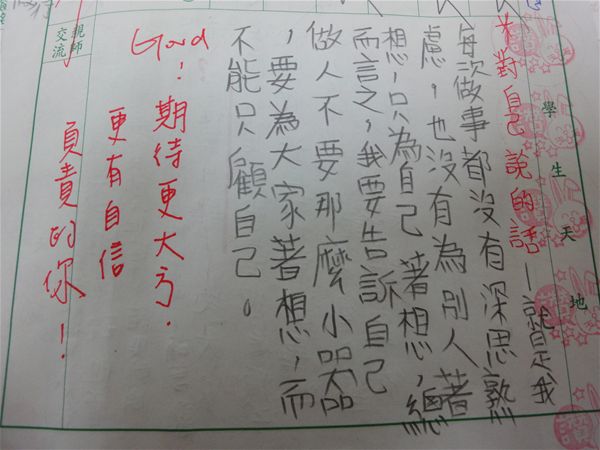 學生天地
*對自己說的話—就是我
每次做事都沒有深思熟
慮，也沒有為別人著
想，只為自己著想，總
而言之，我要告訴自己
做人不要那麼小器
，要為大家著想，而
不能只顧自己。
Good！期待更大方．
更有自信
負責的你！
親師
交流
讀